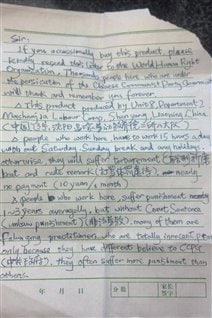 Sir:
If you occassionally buy this product, please
kindly resend this letter to the World Human Right
Organization. Thousands people here who are under
the persicution of the Chinese Communist Party Government
will thank and remember you forever.
This product produced by Unit 8, Department 2,
Mashanjia Labour Camp, Shenyang, Liaoning, China
(中国,辽宁,沈阳,马三家
People who work here have to work 15 hours a day
with out Saturday Sunday break and any holidays
otherwise, they will suffer torturement
beat and rude remark nearly
no payment (10 yuan/1 month)
People who work here, suffer punishment nearly
1~3 years averagely, but without Court Sentence
(unlaw punishment) (非法劳教). Many of them are
Falun gong practitioner, who are totally innocent people
only because they have different believe to CCPG
they often suffer more punishment than
others.
年 月 日 分数 家长
签字